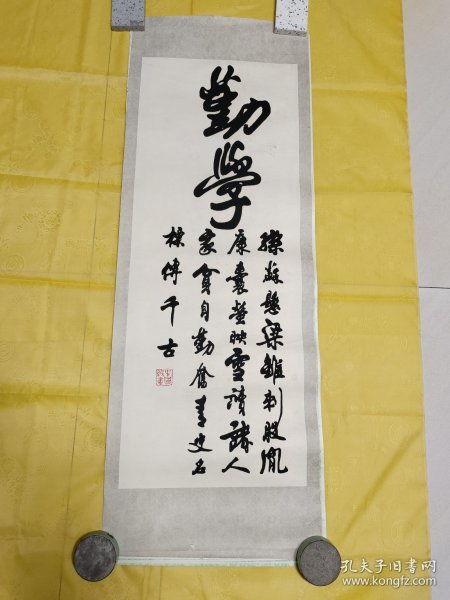 勤學
懸梁錐刺股胤
康囊螢映雪讀諸人
家貧自勤奮青史名
標傳千古
孔夫子旧书网
www.kongfz.com